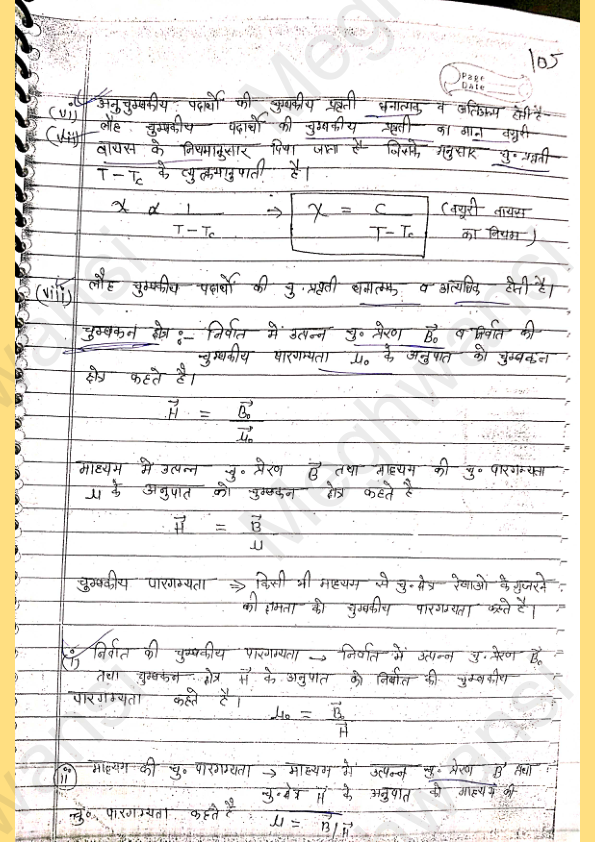 105
Page
Date
(vi) अनुचुम्बकीय पदार्थो की चुम्बकीय प्रवृती धनात्मक व अतिअल्प होती है-
(vii) लौह चुम्बकीय पदार्थो की चुम्बकीय प्रवृती का मान क्यूरी
वायस के नियमानुसार दिया जाता है जिसके अनुसार चु. प्रवृती
T-Tc के व्युत्क्रमानुपाती है।
χ α 1/(T-Tc) → χ = C/(T-Tc) (क्यूरी वायस
का नियम)
(viii) लौह चुम्बकीय पदार्थो की चु. प्रवृती धनात्मक व अत्यधिक होती है।
चुम्बकन क्षेत्र :- निर्वात में उत्पन्न चु. प्रेरण B₀ व निर्वात की
चुम्बकीय पारगम्यता μ₀ के अनुपात को चुम्बकन
क्षेत्र कहते है।
H = B₀/μ₀
माध्यम में उत्पन्न चु. प्रेरण B तथा माध्यम की चु. पारगम्यता
μ के अनुपात को चुम्बकन क्षेत्र कहते है
H = B/μ
चुम्बकीय पारगम्यता ⇒ किसी भी माध्यम से चु. क्षेत्र रेखाओं के गुजरने
की क्षमता को चुम्बकीय पारगम्यता कहते है।
(i) निर्वात की चुम्बकीय पारगम्यता → निर्वात में उत्पन्न चु. प्रेरण B₀
तथा चुम्बकन क्षेत्र H के अनुपात को निर्वात की चुम्बकीय
पारगम्यता कहते है।
μ₀ = B₀/H
(ii) माध्यम की चु. पारगम्यता → माध्यम में उत्पन्न चु. प्रेरण B तथा
चु. क्षेत्र H के अनुपात को माध्यम की
चु. पारगम्यता कहते है
μ = B/H
Meghwansi